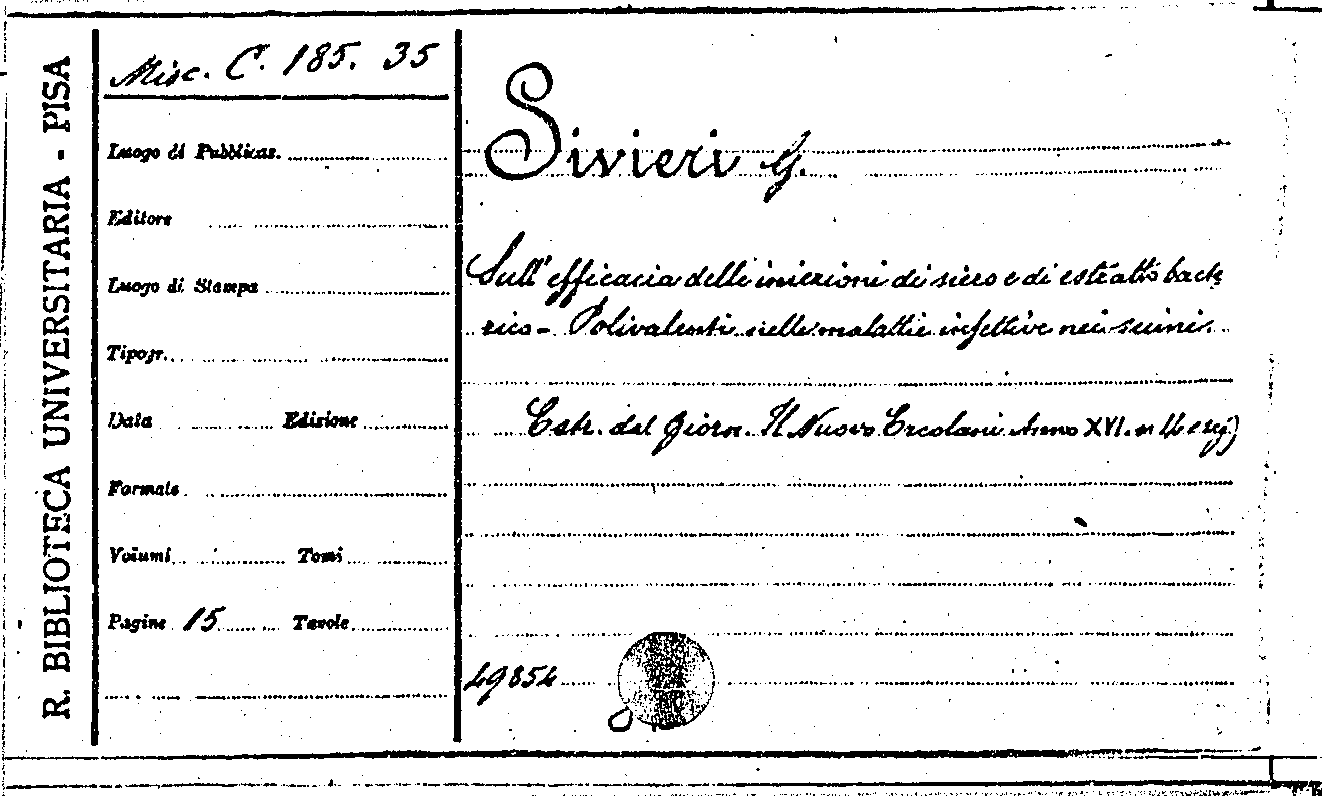 R. BIBLIOTECA UNIVERSITARIA - PISA
Misc. C. 185. 35
Luogo di Pubblicaz.
Editore
Luogo di Stampa
Tipogr.
Data Edizione
Formato
Volumi Tomi
Pagine 15 Tavole
Sivieri G.
Sull'efficacia delle iniezioni di siero e di estratto batte
rico - Polivalenti nelle malattie infettive nei suini
Estr. dal Giorn. Il Nuovo Ercolani Anno XVI. n
49854